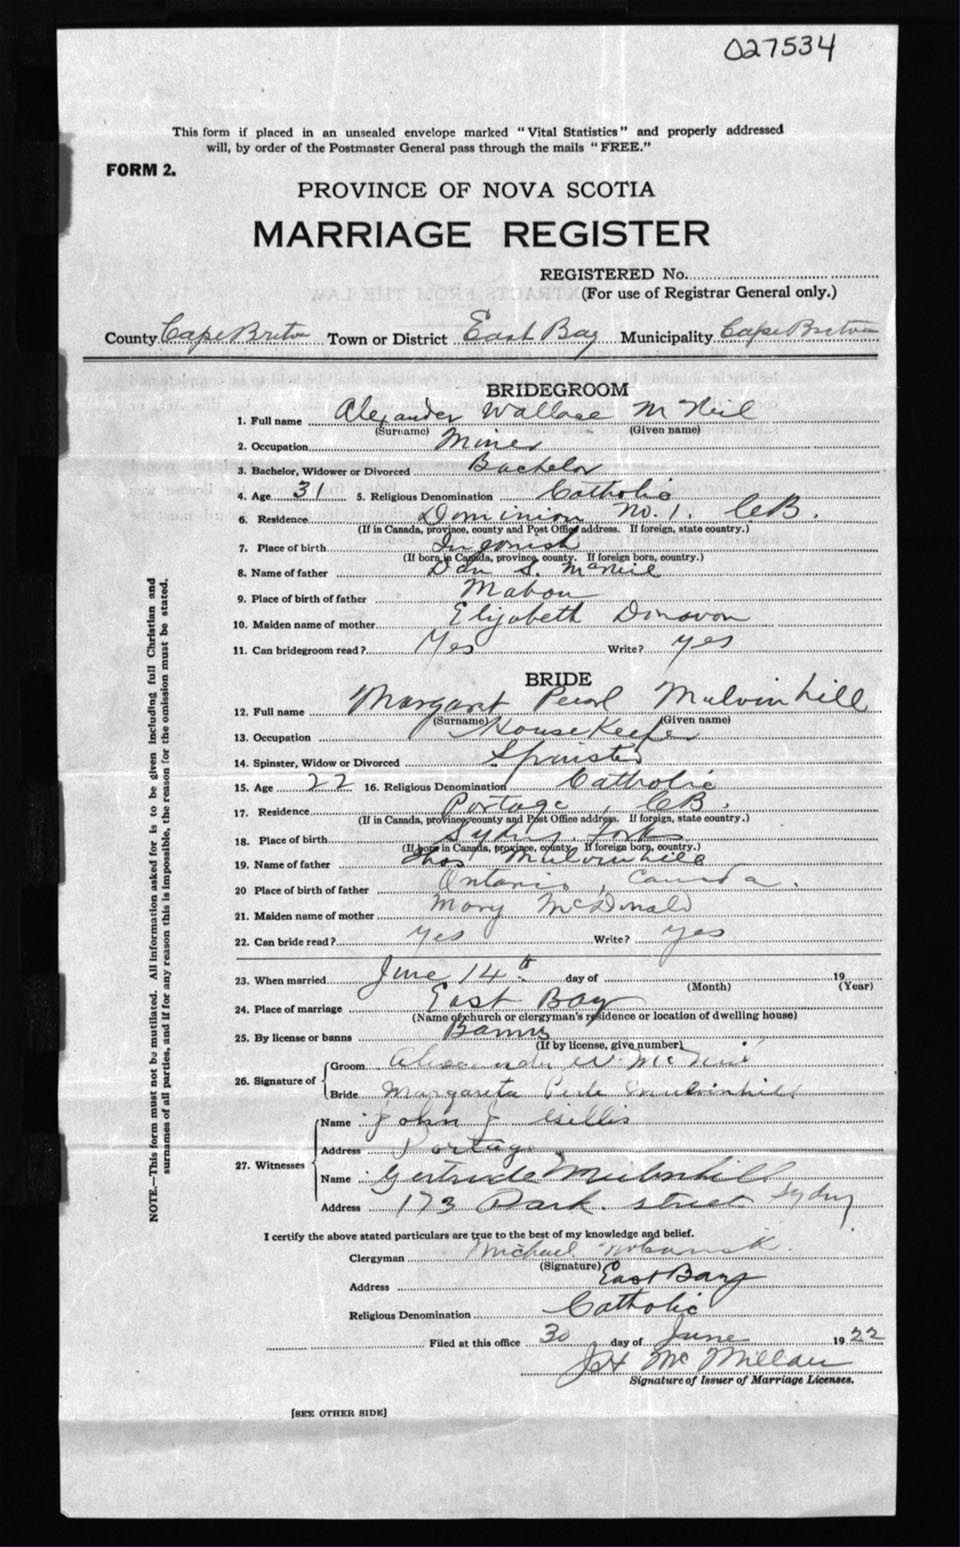 027534
This form if placed in an unsealed envelope marked "Vital Statistics" and properly addressed
will, by order of the Postmaster General pass through the mails "FREE."
FORM 2.
PROVINCE OF NOVA SCOTIA
MARRIAGE REGISTER
REGISTERED No.
(For use of Registrar General only.)
County Cape Breton Town or District East Bay Municipality Cape Breton
BRIDEGROOM
1. Full name Alexander Wallace McNeil
(Surname) (Given name)
2. Occupation Miner
3. Bachelor, Widower or Divorced Bachelor
4. Age 31 5. Religious Denomination Catholic
6. Residence Dominion No. 1. C.B.
(If in Canada, province, county and Post Office address. If foreign, state country.)
7. Place of birth Ingonish
(If born in Canada, province, county. If foreign born, country.)
8. Name of father Dan S. McNeil
9. Place of birth of father Mabou
10. Maiden name of mother Elizabeth Donovon
11. Can bridegroom read? Yes Write? yes
BRIDE
12. Full name Margaret Pearl Mulvinhill
(Surname) (Given name)
13. Occupation House Keeper
14. Spinster, Widow or Divorced Spinster
15. Age 22 16. Religious Denomination Catholic
17. Residence Portage, C.B.
(If in Canada, province, county and Post Office address. If foreign, state country.)
18. Place of birth Sydney Forks
(If born in Canada, province, county. If foreign born, country.)
19. Name of father Thos Mulvinhill
20 Place of birth of father Ontario, Canada.
21. Maiden name of mother Mary McDonald
22. Can bride read? Yes Write? Yes
23. When married June 14th day of 19
(Month) (Year)
24. Place of marriage East Bay
(Name of church or clergyman's residence or location of dwelling house)
25. By license or banns Banns
(If by license, give number)
26. Signature of Groom Alexander W. McNeil
Bride Margareta Perle Mulvinhill
27. Witnesses Name John J Gillis
Address Portage
Name Gertrude Mulvinhill
Address 173 Park street Sydney
I certify the above stated particulars are true to the best of my knowledge and belief.
Clergyman Michael
(Signature)
Address East Bay
Religious Denomination Catholic
Filed at this office 30 day of June 1922
McMillan
Signature of Issuer of Marriage Licenses.
[SEE OTHER SIDE]
NOTE.—This form must not be mutilated. All information asked for is to be given including full Christian and
surnames of all parties, and if for any reason this is impossible, the reason for the omission must be stated.